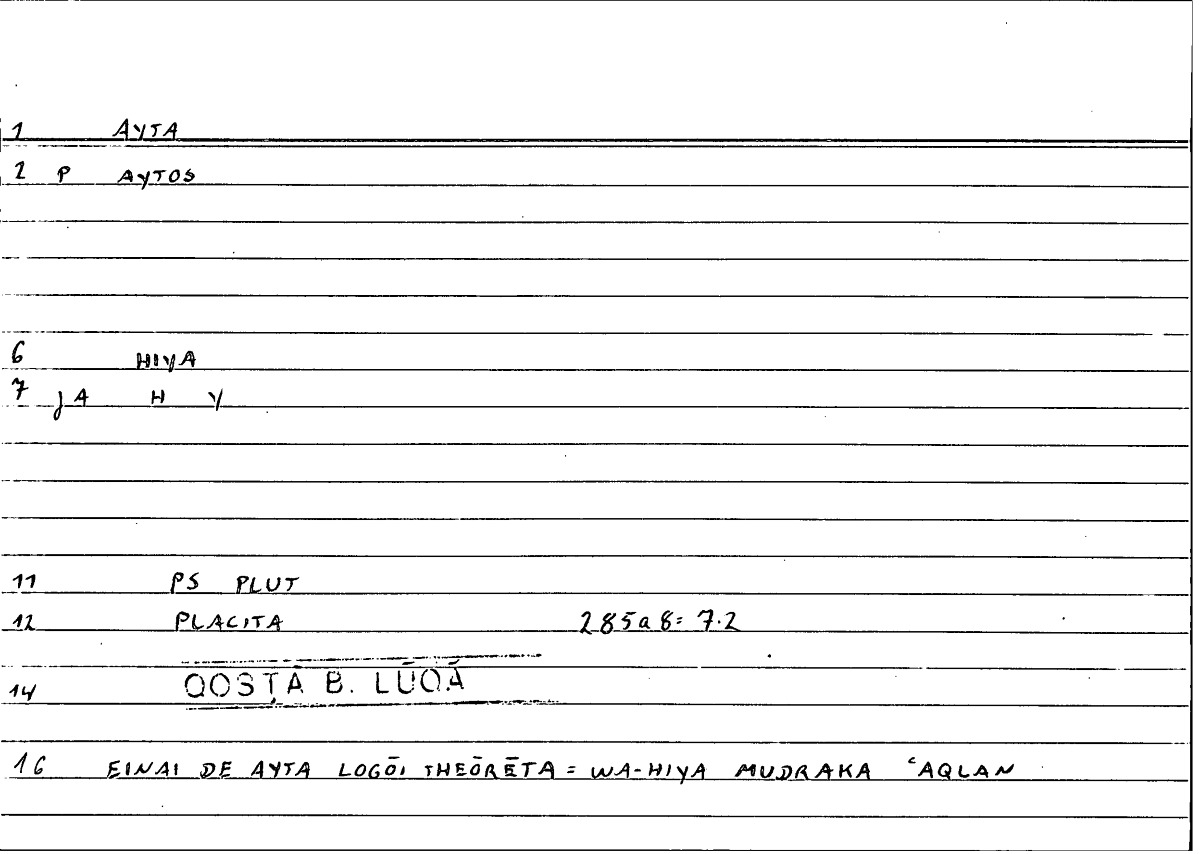 1 AYTA
2 P AYTOS
6 HIYA
7 JA H Y
11 PS PLUT
12 PLACITA 285a8= 7.2
14 QOSṬĀ B. LŪQĀ
16 EINAI DE AYTA LOGŌI THEŌRĒTA = WA-HIYA MUDRAKA ʿAQLAN